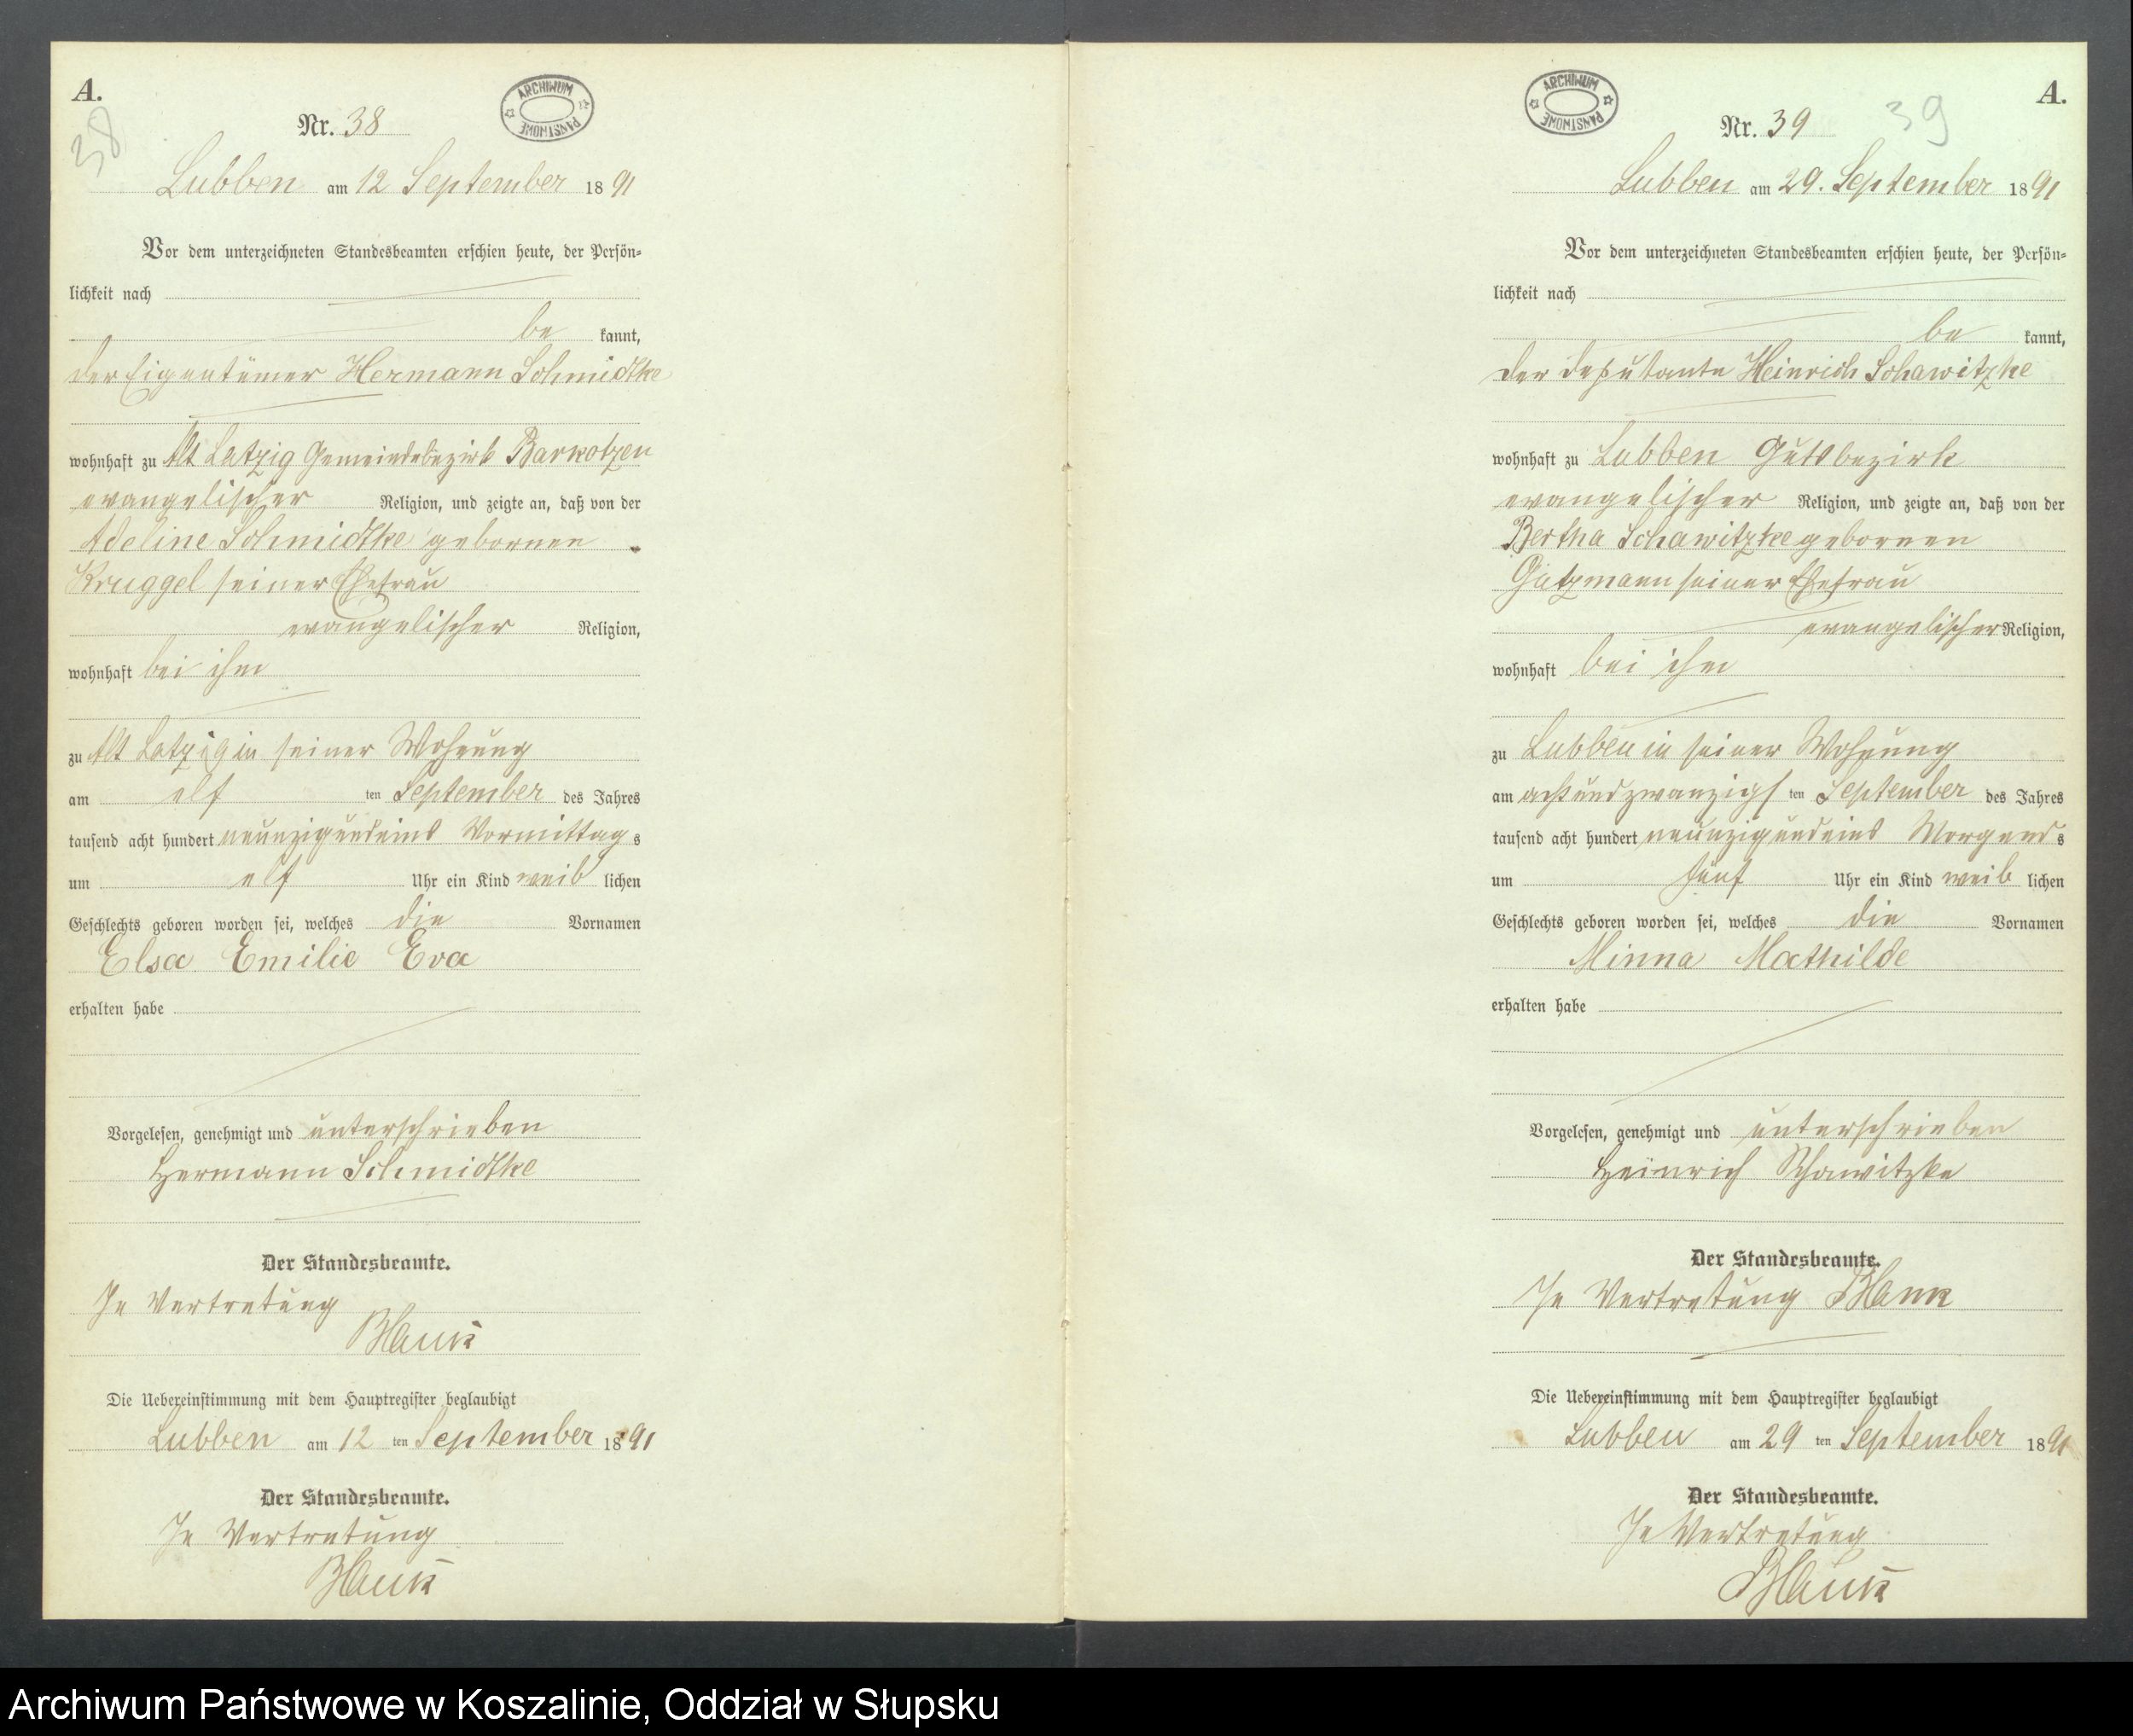 A.
38
ARCHIWUM PAŃSTWOWE
Nr. 38
Lubben am 12 September 1891
Vor dem unterzeichneten Standesbeamten erschien heute, der Persön-
lichkeit nach
be kannt,
der Eigentümer Hermann Schmidtke
wohnhaft zu Alt Latzig Gemeindebezirk Barkotzen
evangelischer Religion, und zeigte an, daß von der
Adeline Schmidtke gebornen
Kruggel seiner Ehefrau
evangelischer Religion,
wohnhaft bei ihm
zu Alt Latzig in seiner Wohnung
am elf ten September des Jahres
tausend acht hundert neunzigundeins Vormittags
um elf Uhr ein Kind weiblichen
Geschlechts geboren worden sei, welches die Vornamen
Elsa Emilie Eva
erhalten habe
Vorgelesen, genehmigt und unterschrieben
Hermann Schmidtke
Der Standesbeamte.
In Vertretung
Die Uebereinstimmung mit dem Hauptregister beglaubigt
Lubben am 12 ten September 1891
Der Standesbeamte.
In Vertretung
A.
39
ARCHIWUM PAŃSTWOWE
Nr. 39
Lubben am 29. September 1891
Vor dem unterzeichneten Standesbeamten erschien heute, der Persön-
lichkeit nach
be kannt,
der Deputante Heinrich Schawitzke
wohnhaft zu Lubben Gutsbezirk
evangelischer Religion, und zeigte an, daß von der
Bertha Schawitzke gebornen
Gutzmann seiner Ehefrau
evangelischer Religion,
wohnhaft bei ihm
zu Lubben in seiner Wohnung
am achtundzwanzigsten September des Jahres
tausend acht hundert neunzigundeins Morgends
um fünf Uhr ein Kind weiblichen
Geschlechts geboren worden sei, welches die Vornamen
Minna Mathilde
erhalten habe
Vorgelesen, genehmigt und unterschrieben
Heinrich Schawitzke
Der Standesbeamte.
In Vertretung
Die Uebereinstimmung mit dem Hauptregister beglaubigt
Lubben am 29 ten September 1891
Der Standesbeamte.
In Vertretung
Archiwum Państwowe w Koszalinie, Oddział w Słupsku